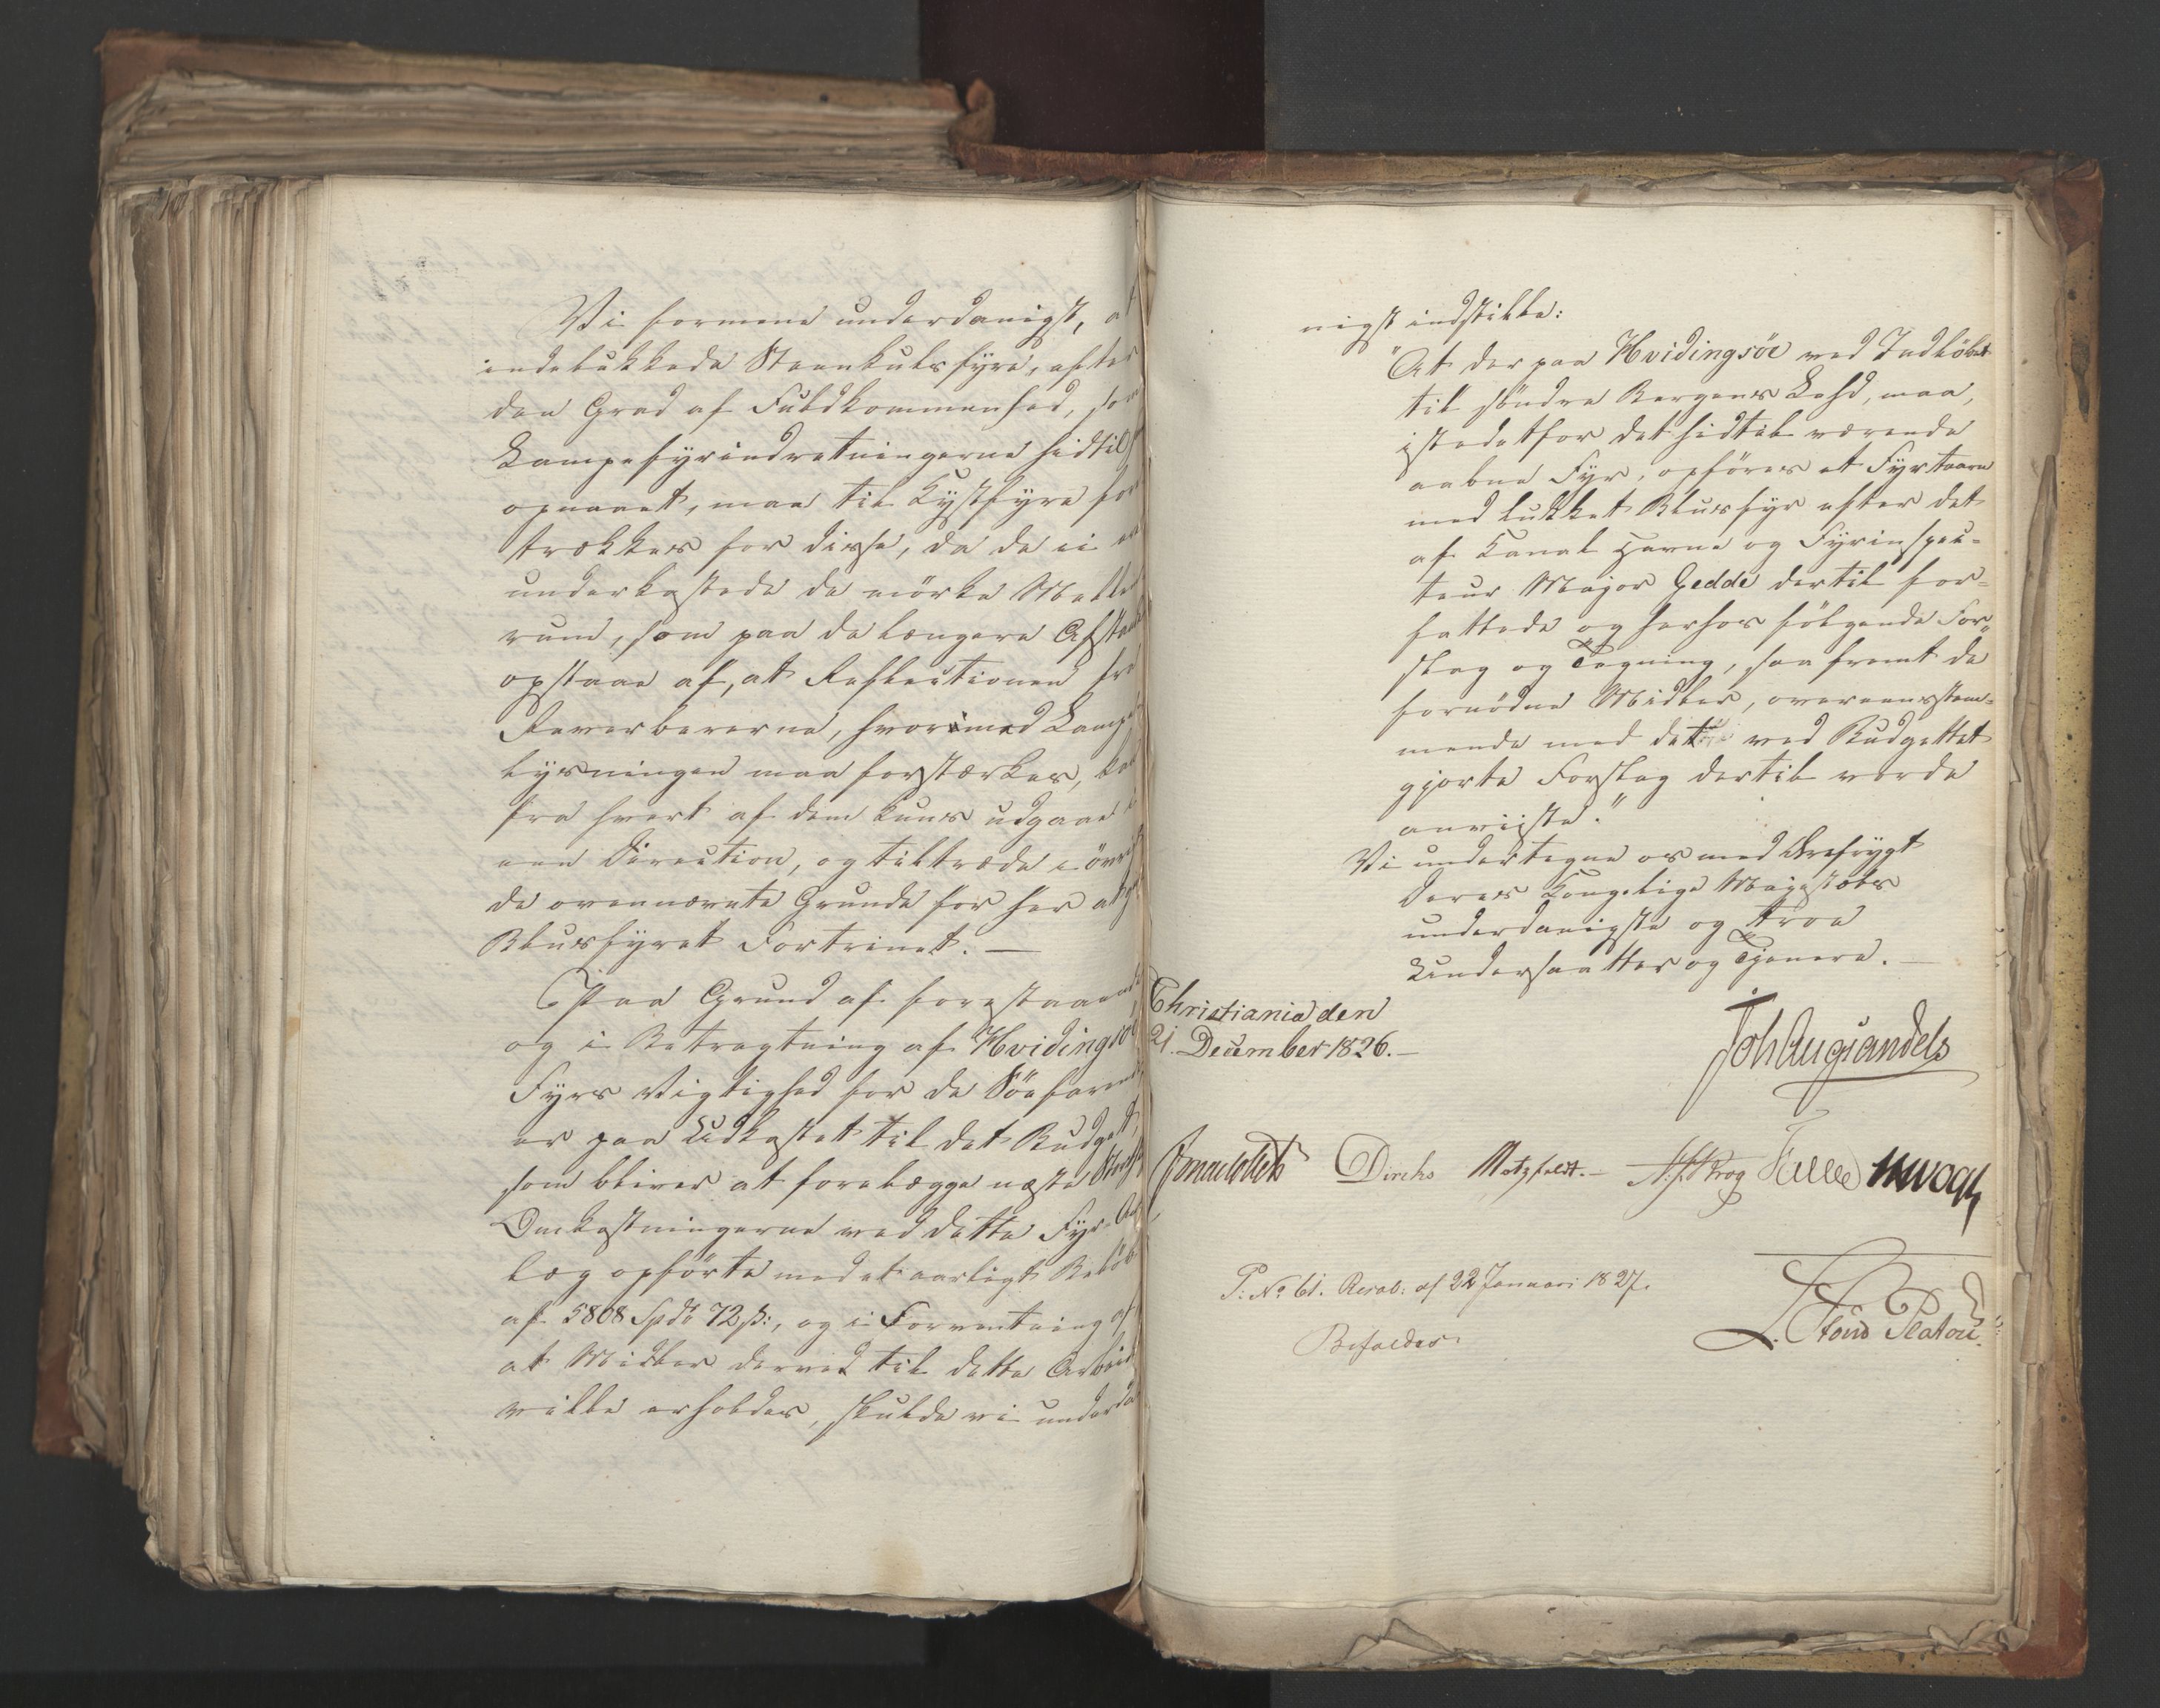 Vi formene underdanigst, at
indelukkede Steenkulsfyre, efter
den Grad af Fuldkommenhed, som
Lampefyrindretningerne hidtil
opnaaet, maa til Kystfyre for
trækkes for disse, da de ei ere
underkastede de mörke Mellem
rum, som paa de længere Afstande
opstaae af, at Reflectionen fra
Reverbererne, hvorimed Lampe
lysningen maa forstærkes, kan
fra hvert af dem kuns udgaae i
een Direction, og tiltræde i övrigt
de ovennævnte Grunde for her at
Blusfyret Fortrinet. —
Paa Grund af forestaaende
og i Betragtning af Hvidingsöe
Fyrs Vigtighed for de Söefarende,
er paa Udkastet til det Budget,
som bliver at forelægge næste Storth
Omkostningerne ved dette Fyr-An
læg opförte med et aarligt Belöb
af 5808 Spd 72 ß:, og i Forventning af
at Midler derved til dette Arbeide
ville erholdes, skulde vi underda
nigst indstille:
"At der paa Hvidingsöe ved Indlöbet
til söndre Bergens Lehd, maa,
istedetfor det hidtil værende
aabne Fyr, opföres et Fyrtaarn
med lukket Blusfyr efter det
af Canal Havne og Fyrinspec-
teur Major Gedde dertil for-
fattede og herhos fölgende For-
slag og Tegning, saafremt de
fornödne Midler, overeensstem-
mende med det ved Budgettet
gjorte Forslag dertil vorde
anviiste."
Vi undertegne os med Ærefrygt
Deres Kongelige Majestæts
underdanigste og troe
Undersaatter og Tjenere. —
Christiania den
21. December 1826. —
Joh Aug Sandels
JCollett Diriks Motzfeldt. — Krog Treschow
P: No 61. Resol: af 22 Januari 1827.
Befaldes.
L. Stoud Platou.